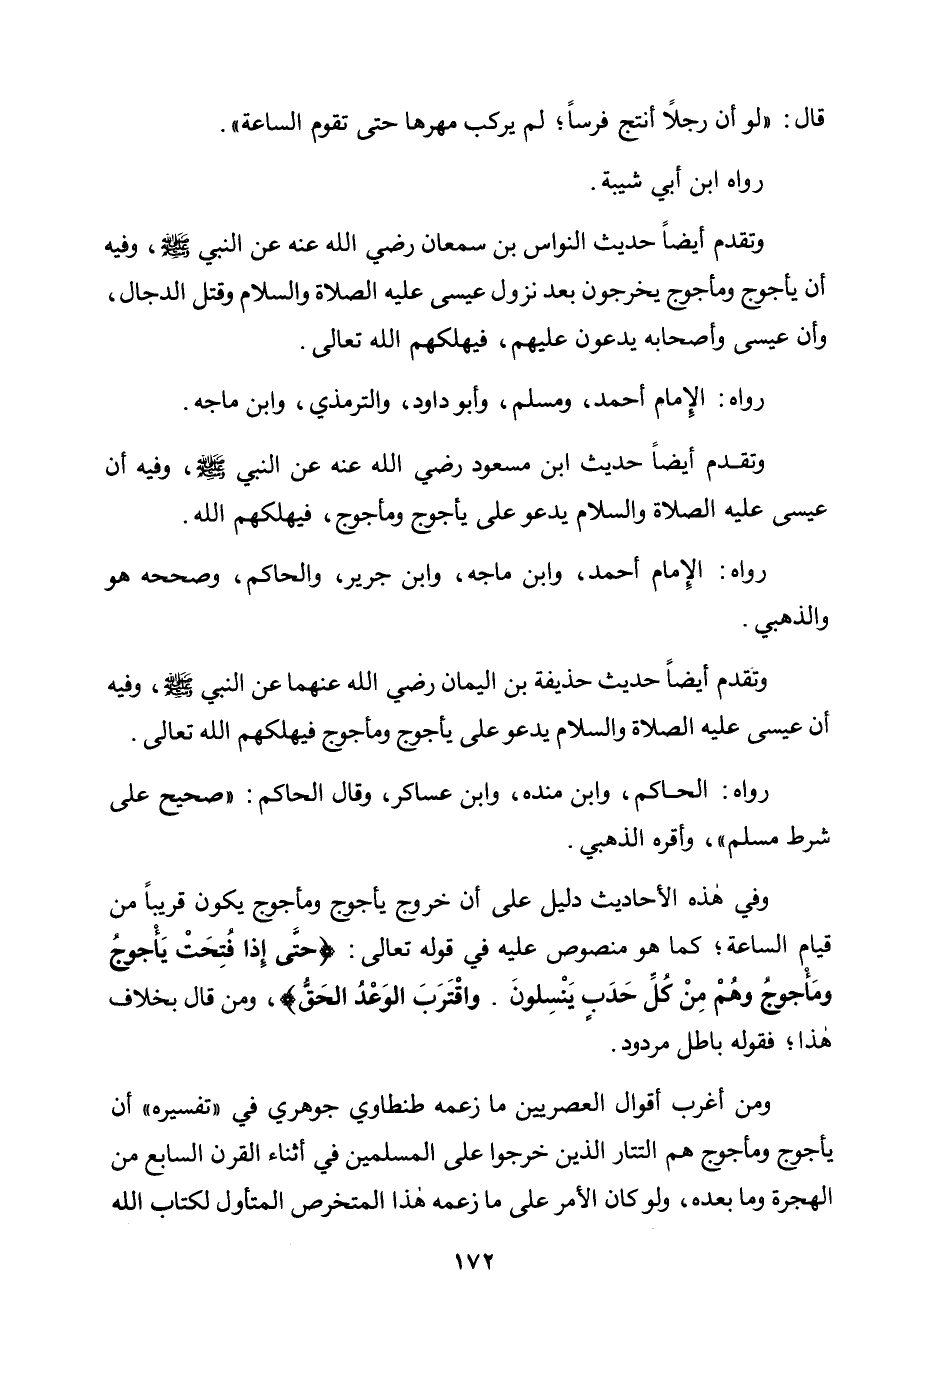 قال: «لو أن رجلاً أنتج فرساً؛ لم يركب مهرها حتى تقوم الساعة».
رواه ابن أبي شيبة.
وتقدم أيضاً حديث النواس بن سمعان رضي الله عنه عن النبي ﷺ، وفيه
أن يأجوج ومأجوج يخرجون بعد نزول عيسى عليه الصلاة والسلام وقتل الدجال،
وأن عيسى وأصحابه يدعون عليهم، فيهلكهم الله تعالى.
رواه: الإمام أحمد، ومسلم، وأبو داود، والترمذي، وابن ماجه.
وتقـدم أيضاً حديث ابن مسعود رضي الله عنه عن النبي ﷺ، وفيه أن
عيسى عليه الصلاة والسلام يدعو على يأجوج ومأجوج، فيهلكهم الله.
رواه: الإمام أحمد، وابن ماجه، وابن جرير، والحاكم، وصححه هو
والذهبي.
وتقدم أيضاً حديث حذيفة بن اليمان رضي الله عنهما عن النبي ﷺ، وفيه
أن عيسى عليه الصلاة والسلام يدعو على يأجوج ومأجوج فيهلكهم الله تعالى.
رواه: الحـاكم، وابن منده، وابن عساكر، وقال الحاكم: «صحيح على
شرط مسلم»، وأقره الذهبي.
وفي هٰذه الأحاديث دليل على أن خروج يأجوج ومأجوج يكون قريباً من
قيام الساعة؛ كما هو منصوص عليه في قوله تعالى: ﴿حتَّى إِذا فُتِحَتْ يَأْجوجُ
ومَأْجوجُ وهُمْ مِنْ كُلِّ حَدَبٍ يَنْسِلونَ . واقْتَرَبَ الوَعْدُ الحَقُّ﴾، ومن قال بخلاف
هٰذا؛ فقوله باطل مردود.
ومن أغرب أقوال العصريين ما زعمه طنطاوي جوهري في «تفسيره» أن
يأجوج ومأجوج هم التتار الذين خرجوا على المسلمين في أثناء القرن السابع من
الهجرة وما بعده، ولو كان الأمر على ما زعمه هٰذا المتخرص المتأول لكتاب الله
١٧٢